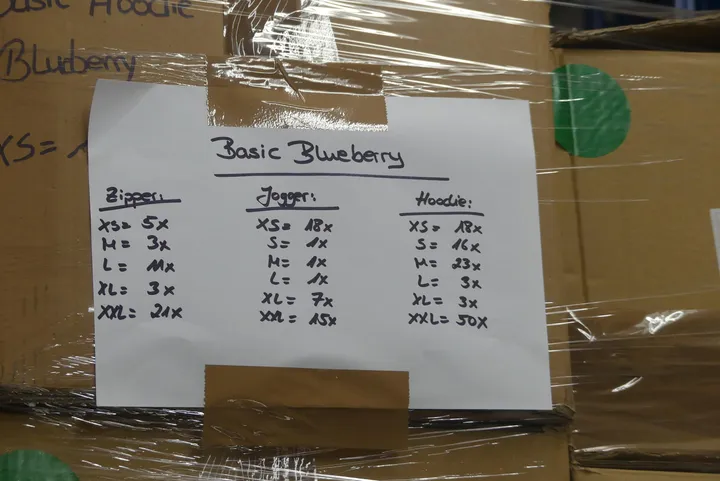 Basic Hoodie
Blueberry
XS=
Basic Blueberry
Zipper:
XS= 5x
M= 3x
L= 11x
XL= 3x
XXL= 21x
Jogger:
XS= 18x
S= 1x
M= 1x
L= 1x
XL= 7x
XXL= 15x
Hoodie:
XS= 18x
S= 16x
M= 23x
L= 3x
XL= 3x
XXL= 50x